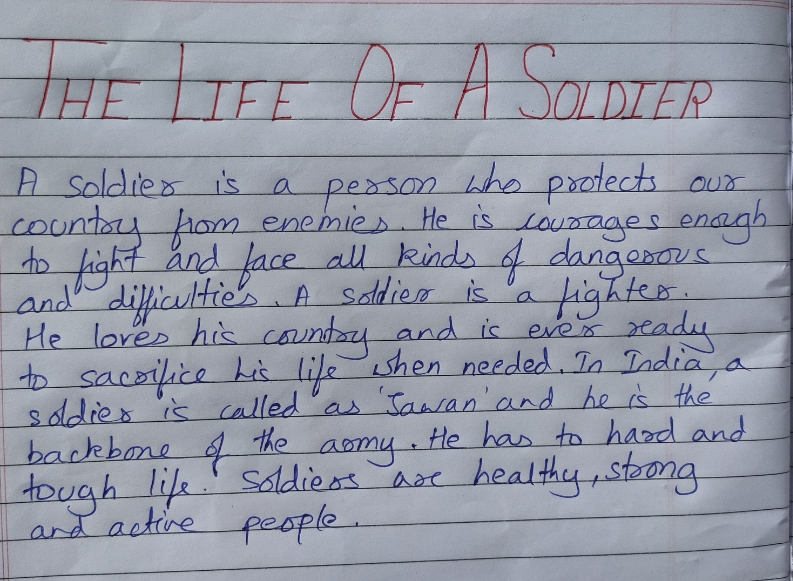 THE LIFE OF A SOLDIER
A soldier is a person who protects our
country from enemies. He is courages enough
to fight and face all kinds of dangerous
and difficulties. A soldier is a fighter.
He loves his country and is ever ready
to sacrifice his life when needed. In India, a
soldier is called as 'Jawan' and he is the
backbone of the army. He has to hard and
tough life. Soldiers are healthy, strong
and active people.